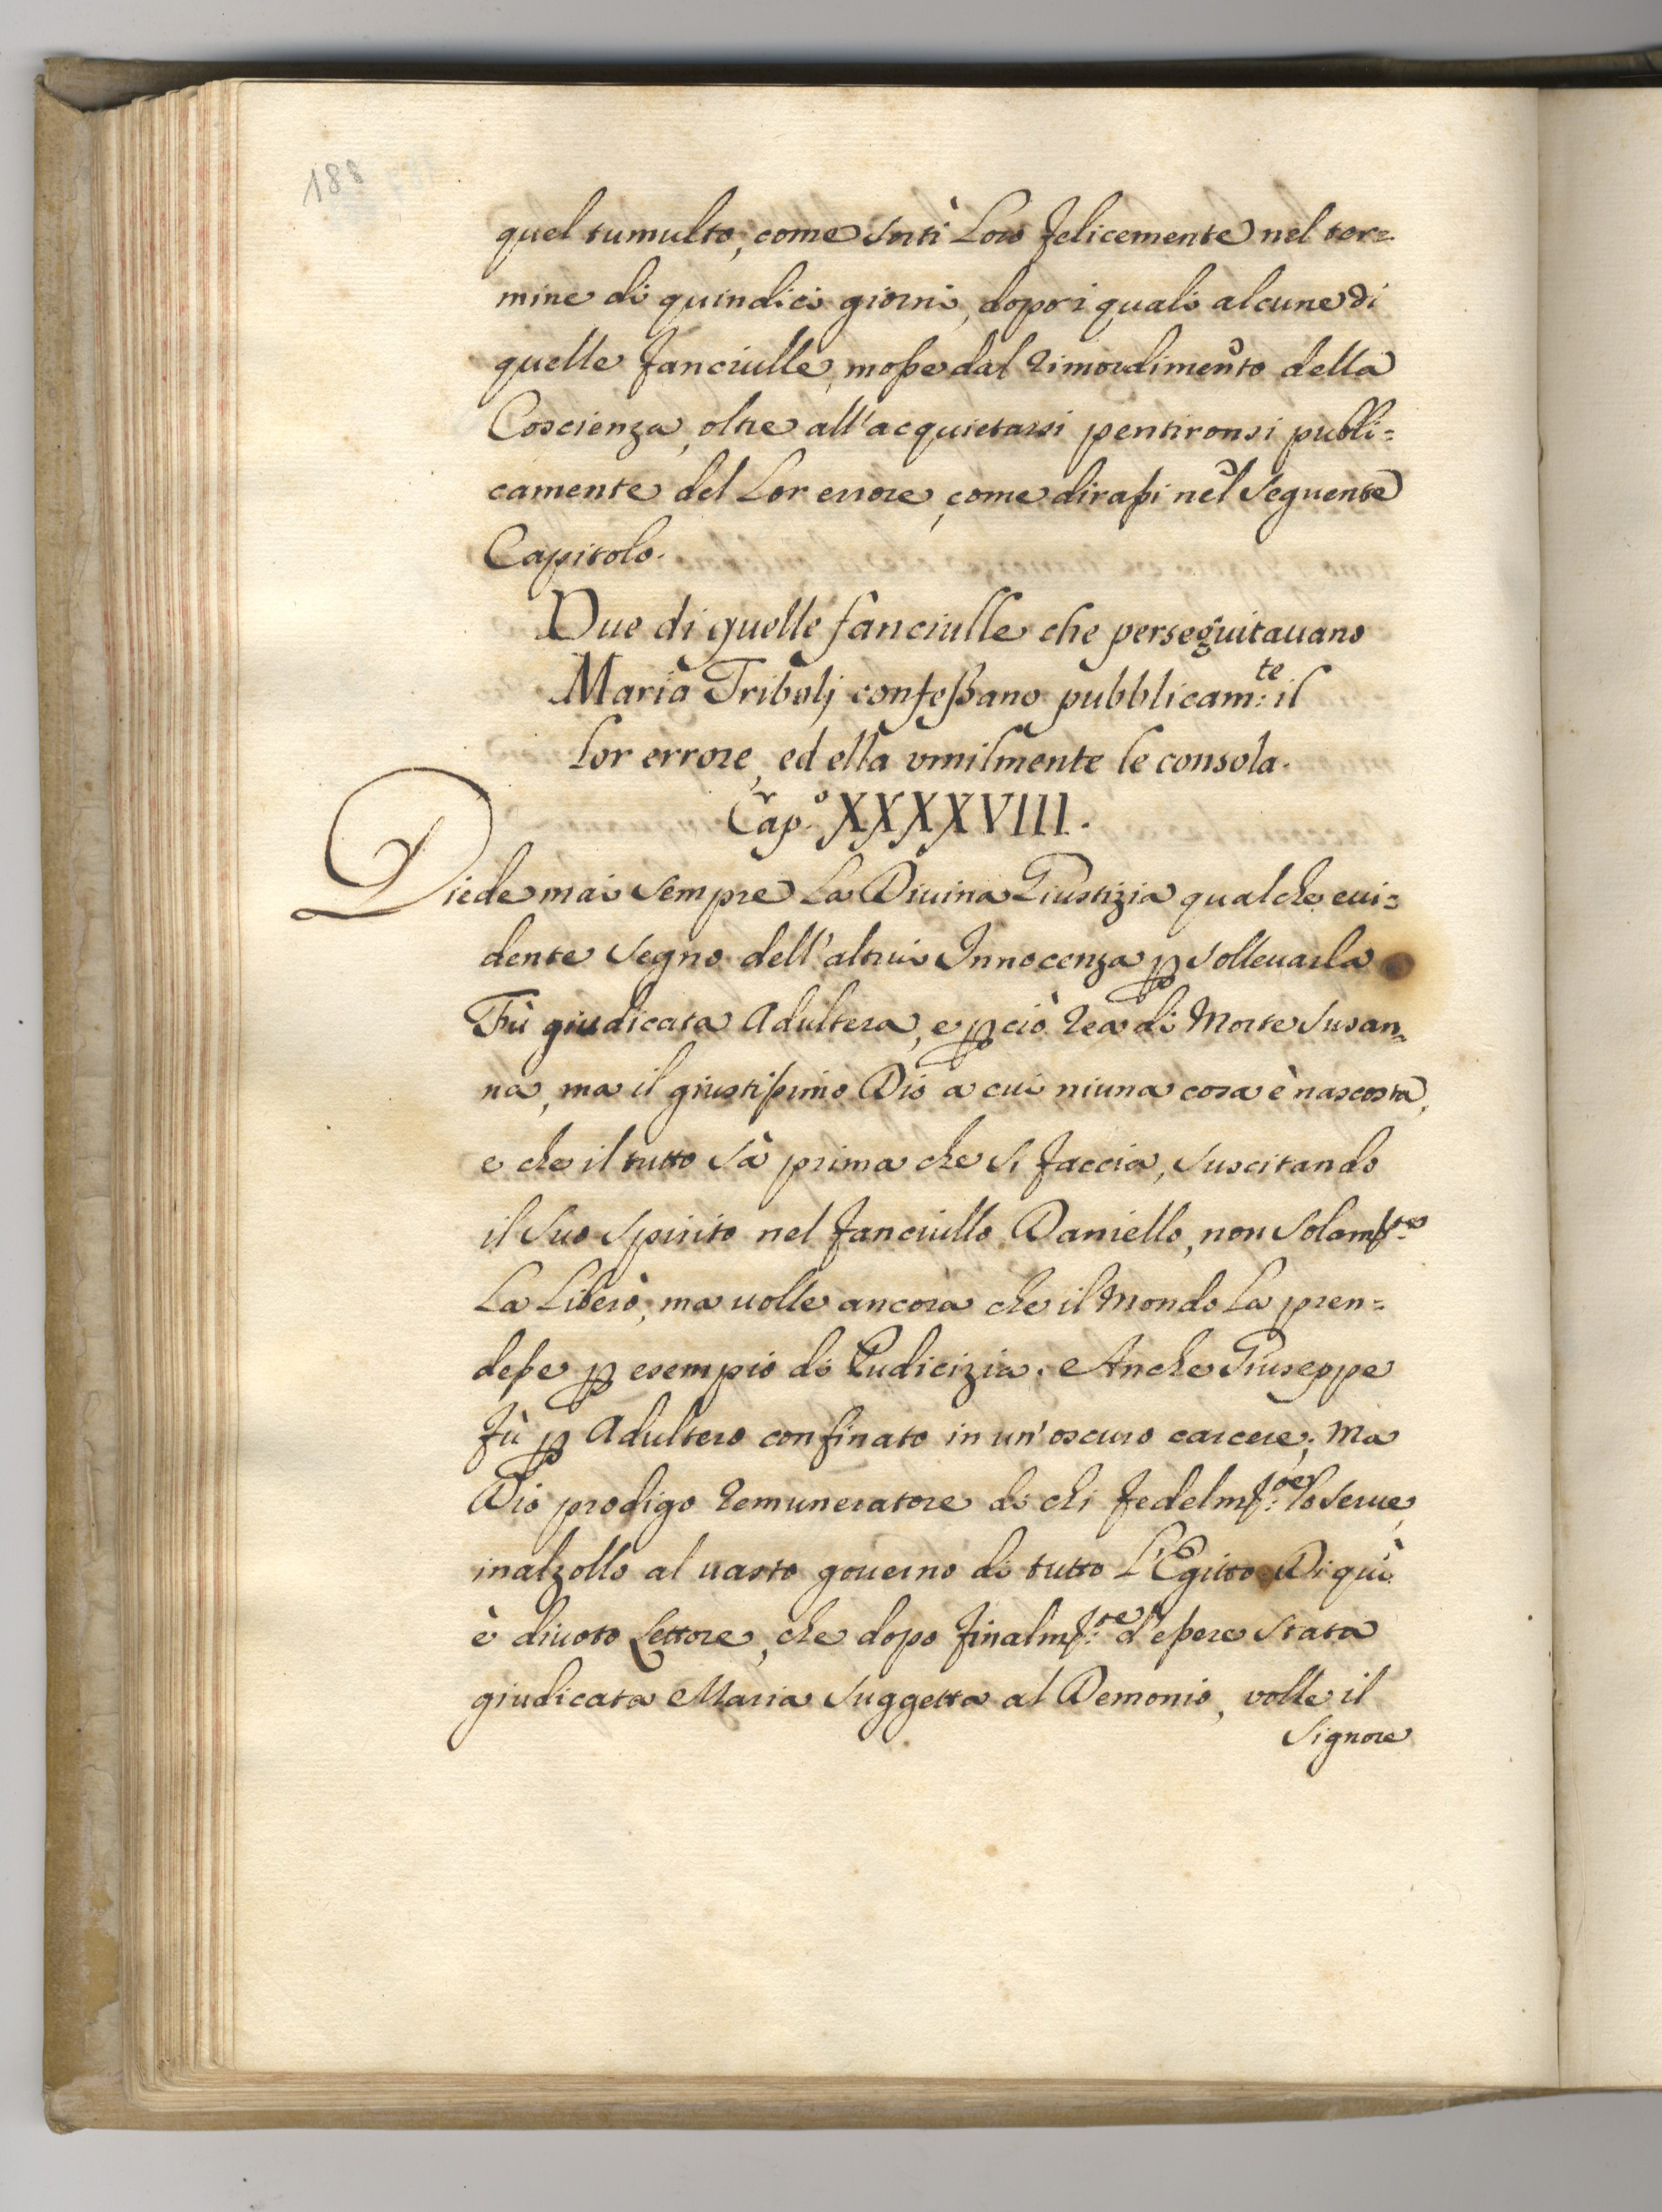 188
quel tumulto, come sortì Loro felicemente nel ter=
mine di quindici giorni, dopo i quali alcune di
quelle fanciulle, mosse dal rimordimento della
Coscienza, oltre all'acquietarsi pentironsi publi=
camente del Lor errore, come dirassi nel seguente
Capitolo.
Due di quelle fanciulle che perseguitauano
Maria Triboli confeßano pubblicam:te il
lor errore, ed ella vmilmente le consola.
Cap.o XXXXVIII.
Diede mai sempre La Diuina Giustizia qualche eui=
dente segno dell'altrui Innocenza ꝑ solleuarla
Fù giudicata Adultera, e ꝑciò rea di Morte Susan=
na, ma il giustissimo Dio a cui niuna cosa è nascosta,
e che il tutto sà prima che si faccia, suscitando
il suo spirito nel fanciullo Daniello, non solamte
La Liberò, ma uolle ancora che il Mondo La pren=
desse ꝑ esempio di Pudicizia. Anche Giuseppe
fù ꝑ Adultero confinato in un'oscuro carcere; Ma
Dio prodigo remuneratore di chi fedelm:te lo serue,
inalzollo al uasto gouerno di tutto L'Egitto. Di quì
è diuoto Lettore, che dopo finalm:te d'essere stata
giudicata Maria suggetta al Demonio, volle il
Signore